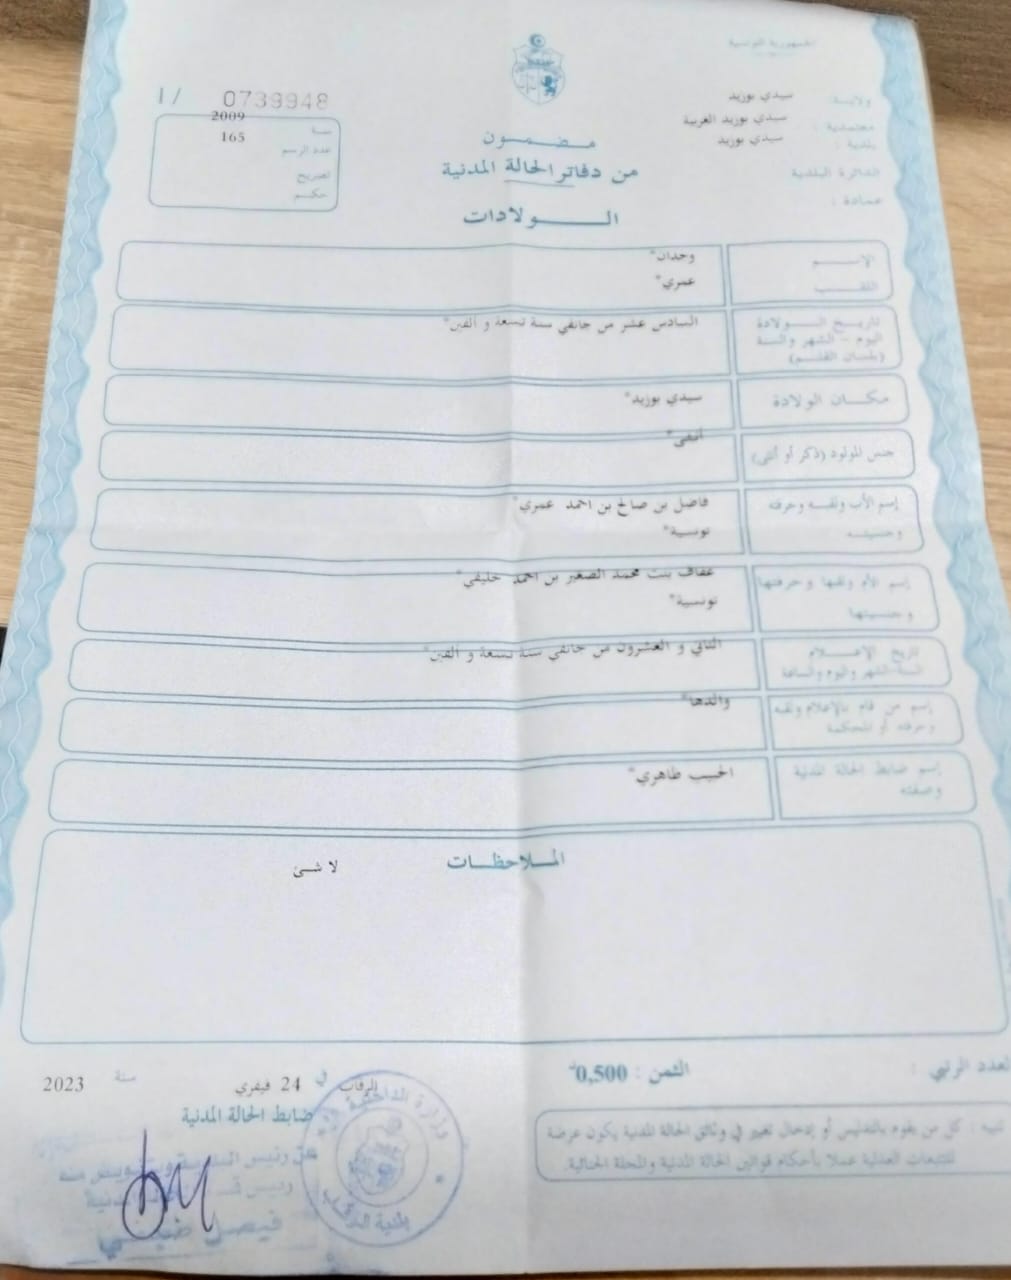 الجمهورية التونسية
ولاية: سيدي بوزيد
معتمدية : سيدي بوزيد الغربية
بلدية : سيدي بوزيد
الدائرة البلدية
عمادة :
0739948 / I
سنة 2009
عدد الرسم 165
تصريح
حكم
مضمون
من دفاتر الحالة المدنية
الولادات
الإسم وجدان*
اللقب عمري*
تاريخ الولادة
اليوم - الشهر والسنة
(بلسان القلم)
السادس عشر من جانفي سنة تسعة و ألفين*
مكان الولادة سيدي بوزيد*
جنس المولود (ذكر أو أنثى) أنثى*
إسم الأب ولقبه وحرفته فاضل بن صالح بن احمد عمري*
وجنسيته تونسية*
إسم الأم ولقبها وحرفتها عفاف بنت محمد الصغير بن احمد خليفي*
وجنسيتها تونسية*
تاريخ الإعلام الثاني و العشرون من جانفي سنة تسعة و ألفين*
السنة-الشهر واليوم والساعة
إسم من قام بالإعلام ولقبه والدها*
وحرفته أو المحكمة
إسم ضابط الحالة المدنية الحبيب طاهري*
وصفته
الملاحظات
لا شئ
العدد الرتبي :
الثمن : 0,500د
تنبيه : كل من يقوم بالتدليس أو إدخال تغيير في وثائق الحالة المدنية يكون عرضة
للتتبعات العدلية عملا بأحكام قوانين الحالة المدنية والمجلة الجنائية.
الرقاب في 24 فيفري سنة 2023
ضابط الحالة المدنية
عن رئيس البلدية وبتفويض منه
رئيس المدنية
فيصل
وزارة الداخلية
بلدية الرقاب